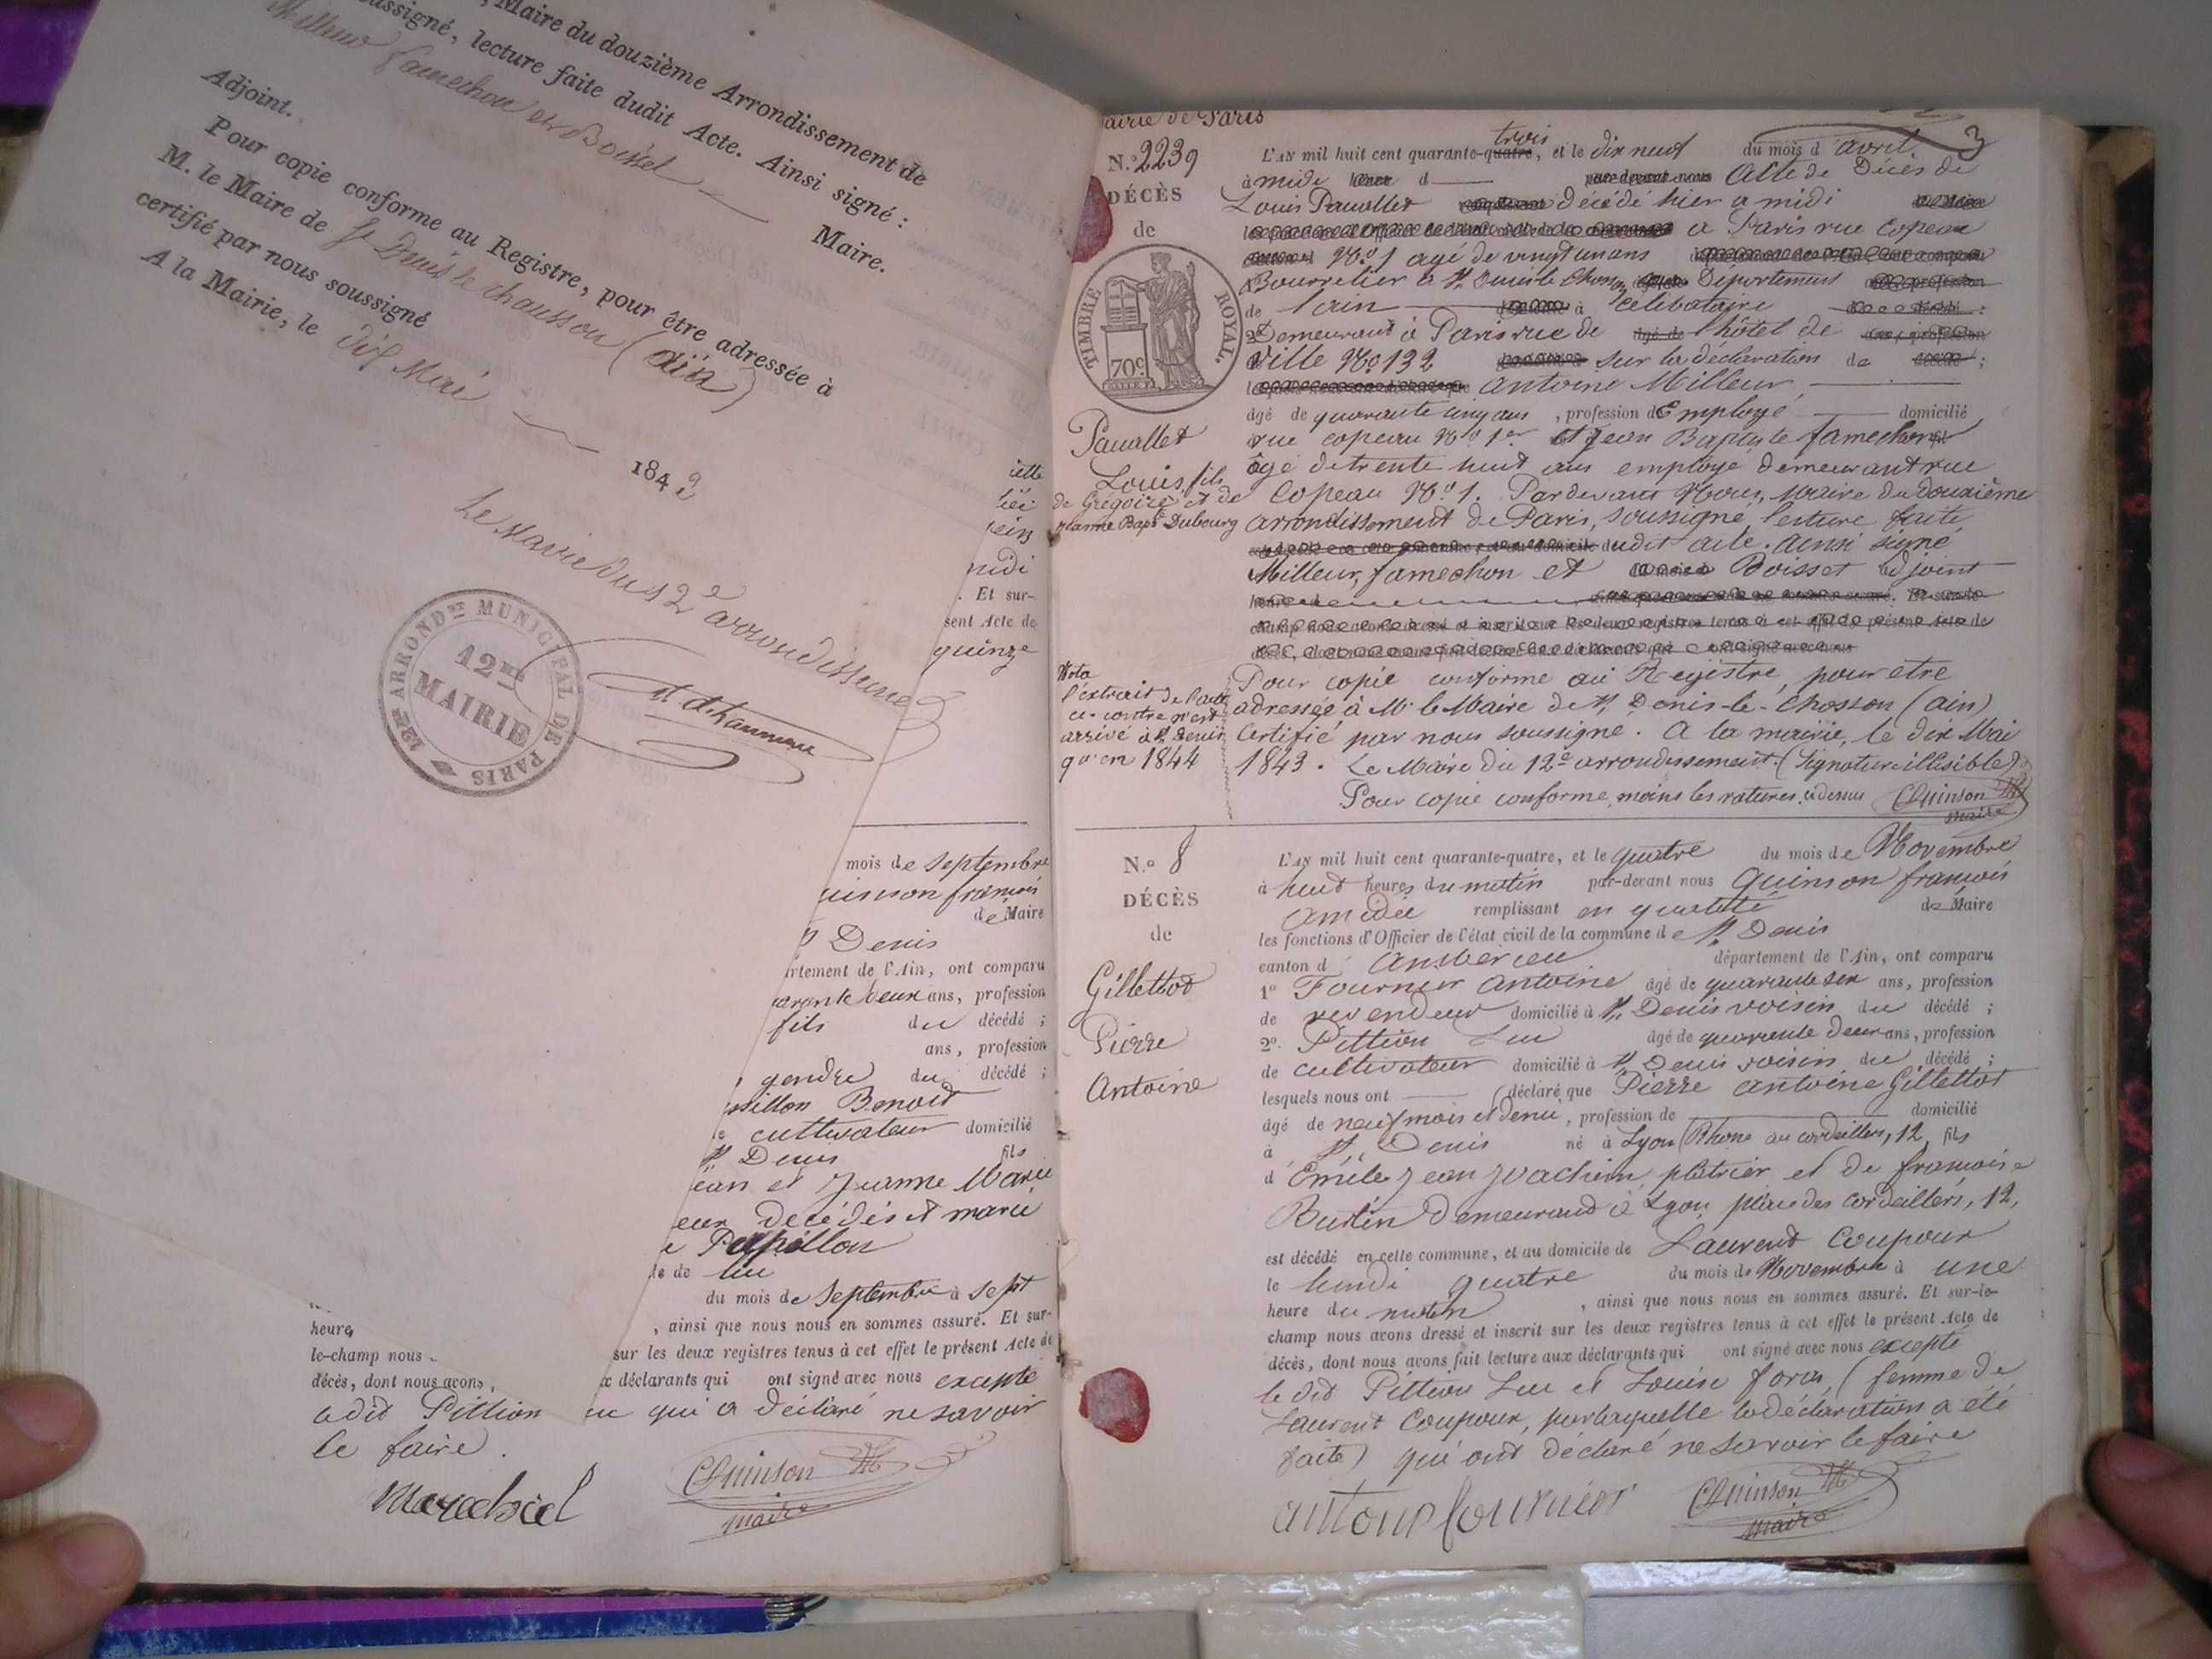 Maire du douzième Arrondissement de
soussigné, lecture faite dudit Acte. Ainsi signé :
Milleur famechon et Boissel
Maire.
Adjoint.
Pour copie conforme au Registre, pour être adressée à
M. le Maire de St Denis le chausson (ain)
certifié par nous soussigné
A la Mairie, le dix Mai
1843
Le Maire du 12e arrondissement
12me ARRONDnt MUNICIPAL DE PARIS
12me
MAIRIE
midi
. Et sur-
sent Acte de
quinze
mois de septembre
uinson françois
de Maire
St Denis
artement de l'Ain, ont comparu
arante deux ans, profession
fils du décédé ;
ans, profession
gendre du décédé ;
Benoit
cultivateur domicilié
St Denis fils
ean et Jeanne Marie
eux décédés et marié
Papillon
le de lui
du mois de septembre à sept
heures , ainsi que nous nous en sommes assuré. Et sur-
le-champ nous sur les deux registres tenus à cet effet le présent Acte de
décès, dont nous avons x déclarants qui ont signé avec nous excepté
ledit Pittion uc qui a déclaré ne savoir
le faire.
Marechal
CQuinson
maire
Mairie de Paris
3
N.o 2239
DÉCÈS
de
TIMBRE ROYAL.
70c.
Pauallet
Louis fils
de Grégoire et de
Jeanne Bapt Dubourg
L'AN mil huit cent quarante-quatre trois, et le dix neuf du mois d'avril
à midi par-devant nous Acte de Décès de
Louis Pauallet décédé hier a midi
a Paris rue Copeau
No 1 agé de vingt un ans
Bourrelier a St Denis le Chosson Département
de l'ain célibataire
Demeurant à Paris rue de l'hôtel de
Ville No 132 sur la déclaration de
Antoine Milleur
âgé de quarante cinq ans, profession d'Employé domicilié
rue copeau No 1er et Jean Baptiste famechon
âgé de trente huit ans employé demeurant rue
Copeau No 1. Pardevant Nous, Maire du douzième
arrondissement de Paris, soussigné, lecture faite
dudit acte. Ainsi signé
Milleur, famechon et Boissel adjoint
Nota
l'extrait de l'acte
ci-contre n'est
arrivé à St Denis
qu'en 1844
Pour copie conforme au Registre, pour etre
adressée à Mr le Maire de St Denis-le-Chosson (ain)
Certifié par nous soussigné. A la mairie, le dix Mai
1843. Le Maire du 12e arrondissement. (Signature illisible)
Pour copie conforme, moins les ratures, ci dessus CQuinson
maire
N.o 8
DÉCÈS
de
Gillettot
Pierre
Antoine
L'AN mil huit cent quarante-quatre, et le quatre du mois de Novembre
à huit heures du matin par-devant nous Quinson françois
amédée remplissant en qualité de Maire
les fonctions d'Officier de l'état civil de la commune de St Denis
canton d' Ambérieu département de l'Ain, ont comparu
1o Fournier Antoine âgé de quarante six ans, profession
de revendeur domicilié à St Denis voisin du décédé ;
2o. Pittion Luc âgé de quarante deux ans, profession
de cultivateur domicilié à St Denis voisin du décédé ;
lesquels nous ont déclaré que Pierre Antoine Gillettot
âgé de neuf mois et demi, profession de domicilié
à St Denis né à Lyon (Rhone) au cordeliers, 12, fils
d'Emile Jean Joachim, plâtrier et de françoise
Burtin demeurant à Lyon place des cordelliers, 12,
est décédé en cette commune, et au domicile de Laurent Coupour
le lundi quatre du mois de Novembre à une
heure du matin , ainsi que nous nous en sommes assuré. Et sur-le-
champ nous avons dressé et inscrit sur les deux registres tenus à cet effet le présent Acte de
décès, dont nous avons fait lecture aux déclarants qui ont signé avec nous excepté
le dit Pittion Luc et Louise foras (femme de
Laurent Coupour, par laquelle la déclaration a été
faite) qui ont déclaré ne savoir le faire
antoine fournier
CQuinson
maire